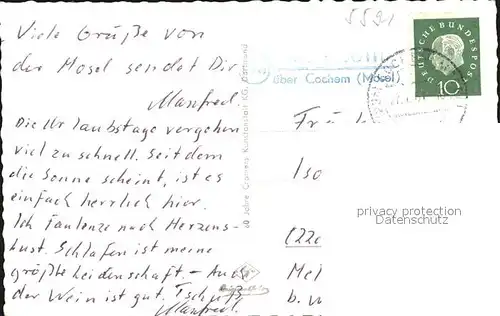 5521
Viele Grüße von
der Mosel sendet Dir
Manfred.
Die Urlaubstage vergehen
viel zu schnell. Seit dem
die Sonne scheint, ist es
einfach herrlich hier.
Ich faulenze nach Herzens-
lust. Schlafen ist meine
größte Leidenschaft. - Auch
der Wein ist gut. Tschüß
Manfred.
über Cochem (Mosel)
DEUTSCHE BUNDESPOST
10
60 Jahre Cramers Kunstanstalt KG, Dortmund
Frä
Iso
(22c
Mel
b.
privacy protection
Datenschutz